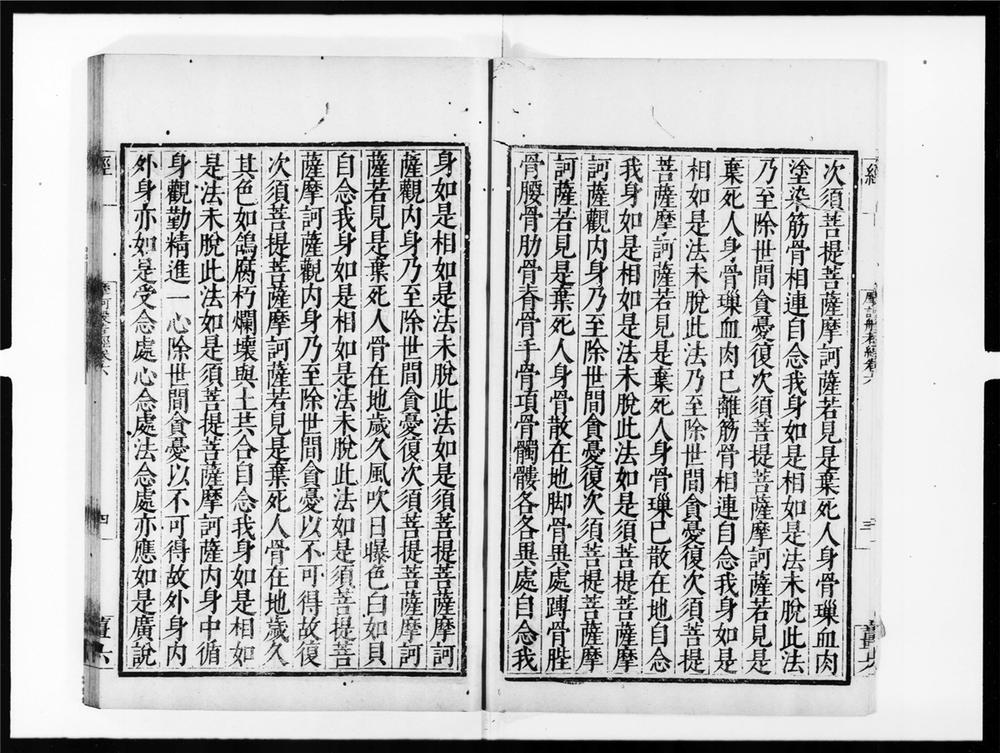 次須菩提菩薩摩訶薩若見是棄死人身骨璅血肉
塗染筋骨相連自念我身如是相如是法未脫此法
乃至除世間貪憂復次須菩提菩薩摩訶薩若見是
棄死人身骨璅血肉已離筋骨相連自念我身如是
相如是法未脫此法乃至除世間貪憂復次須菩提
菩薩摩訶薩若見是棄死人身骨璅已散在地自念
我身如是相如是法未脫此法如是須菩提菩薩摩
訶薩觀內身乃至除世間貪憂復次須菩提菩薩摩
訶薩若見是棄死人身骨散在地脚骨異處䏶骨䏶
骨腰骨肋骨脊骨手骨項骨髑髏各各異處自念我
身如是相如是法未脫此法如是須菩提菩薩摩訶
薩觀內身乃至除世間貪憂復次須菩提菩薩摩訶
薩若見是棄死人骨在地歲久風吹日曝色白如貝
自念我身如是相如是法未脫此法如是須菩提菩
薩摩訶薩觀內身乃至除世間貪憂以不可得故復
次須菩提菩薩摩訶薩若見是棄死人骨在地歲久
其色如鴿腐朽爛壞與土共合自念我身如是相如
是法未脫此法如是須菩提菩薩摩訶薩內身中循
身觀勤精進一心除世間貪憂以不可得故外身內
外身亦如是受念處心念處法念處亦應如是廣說
經
四
薑六